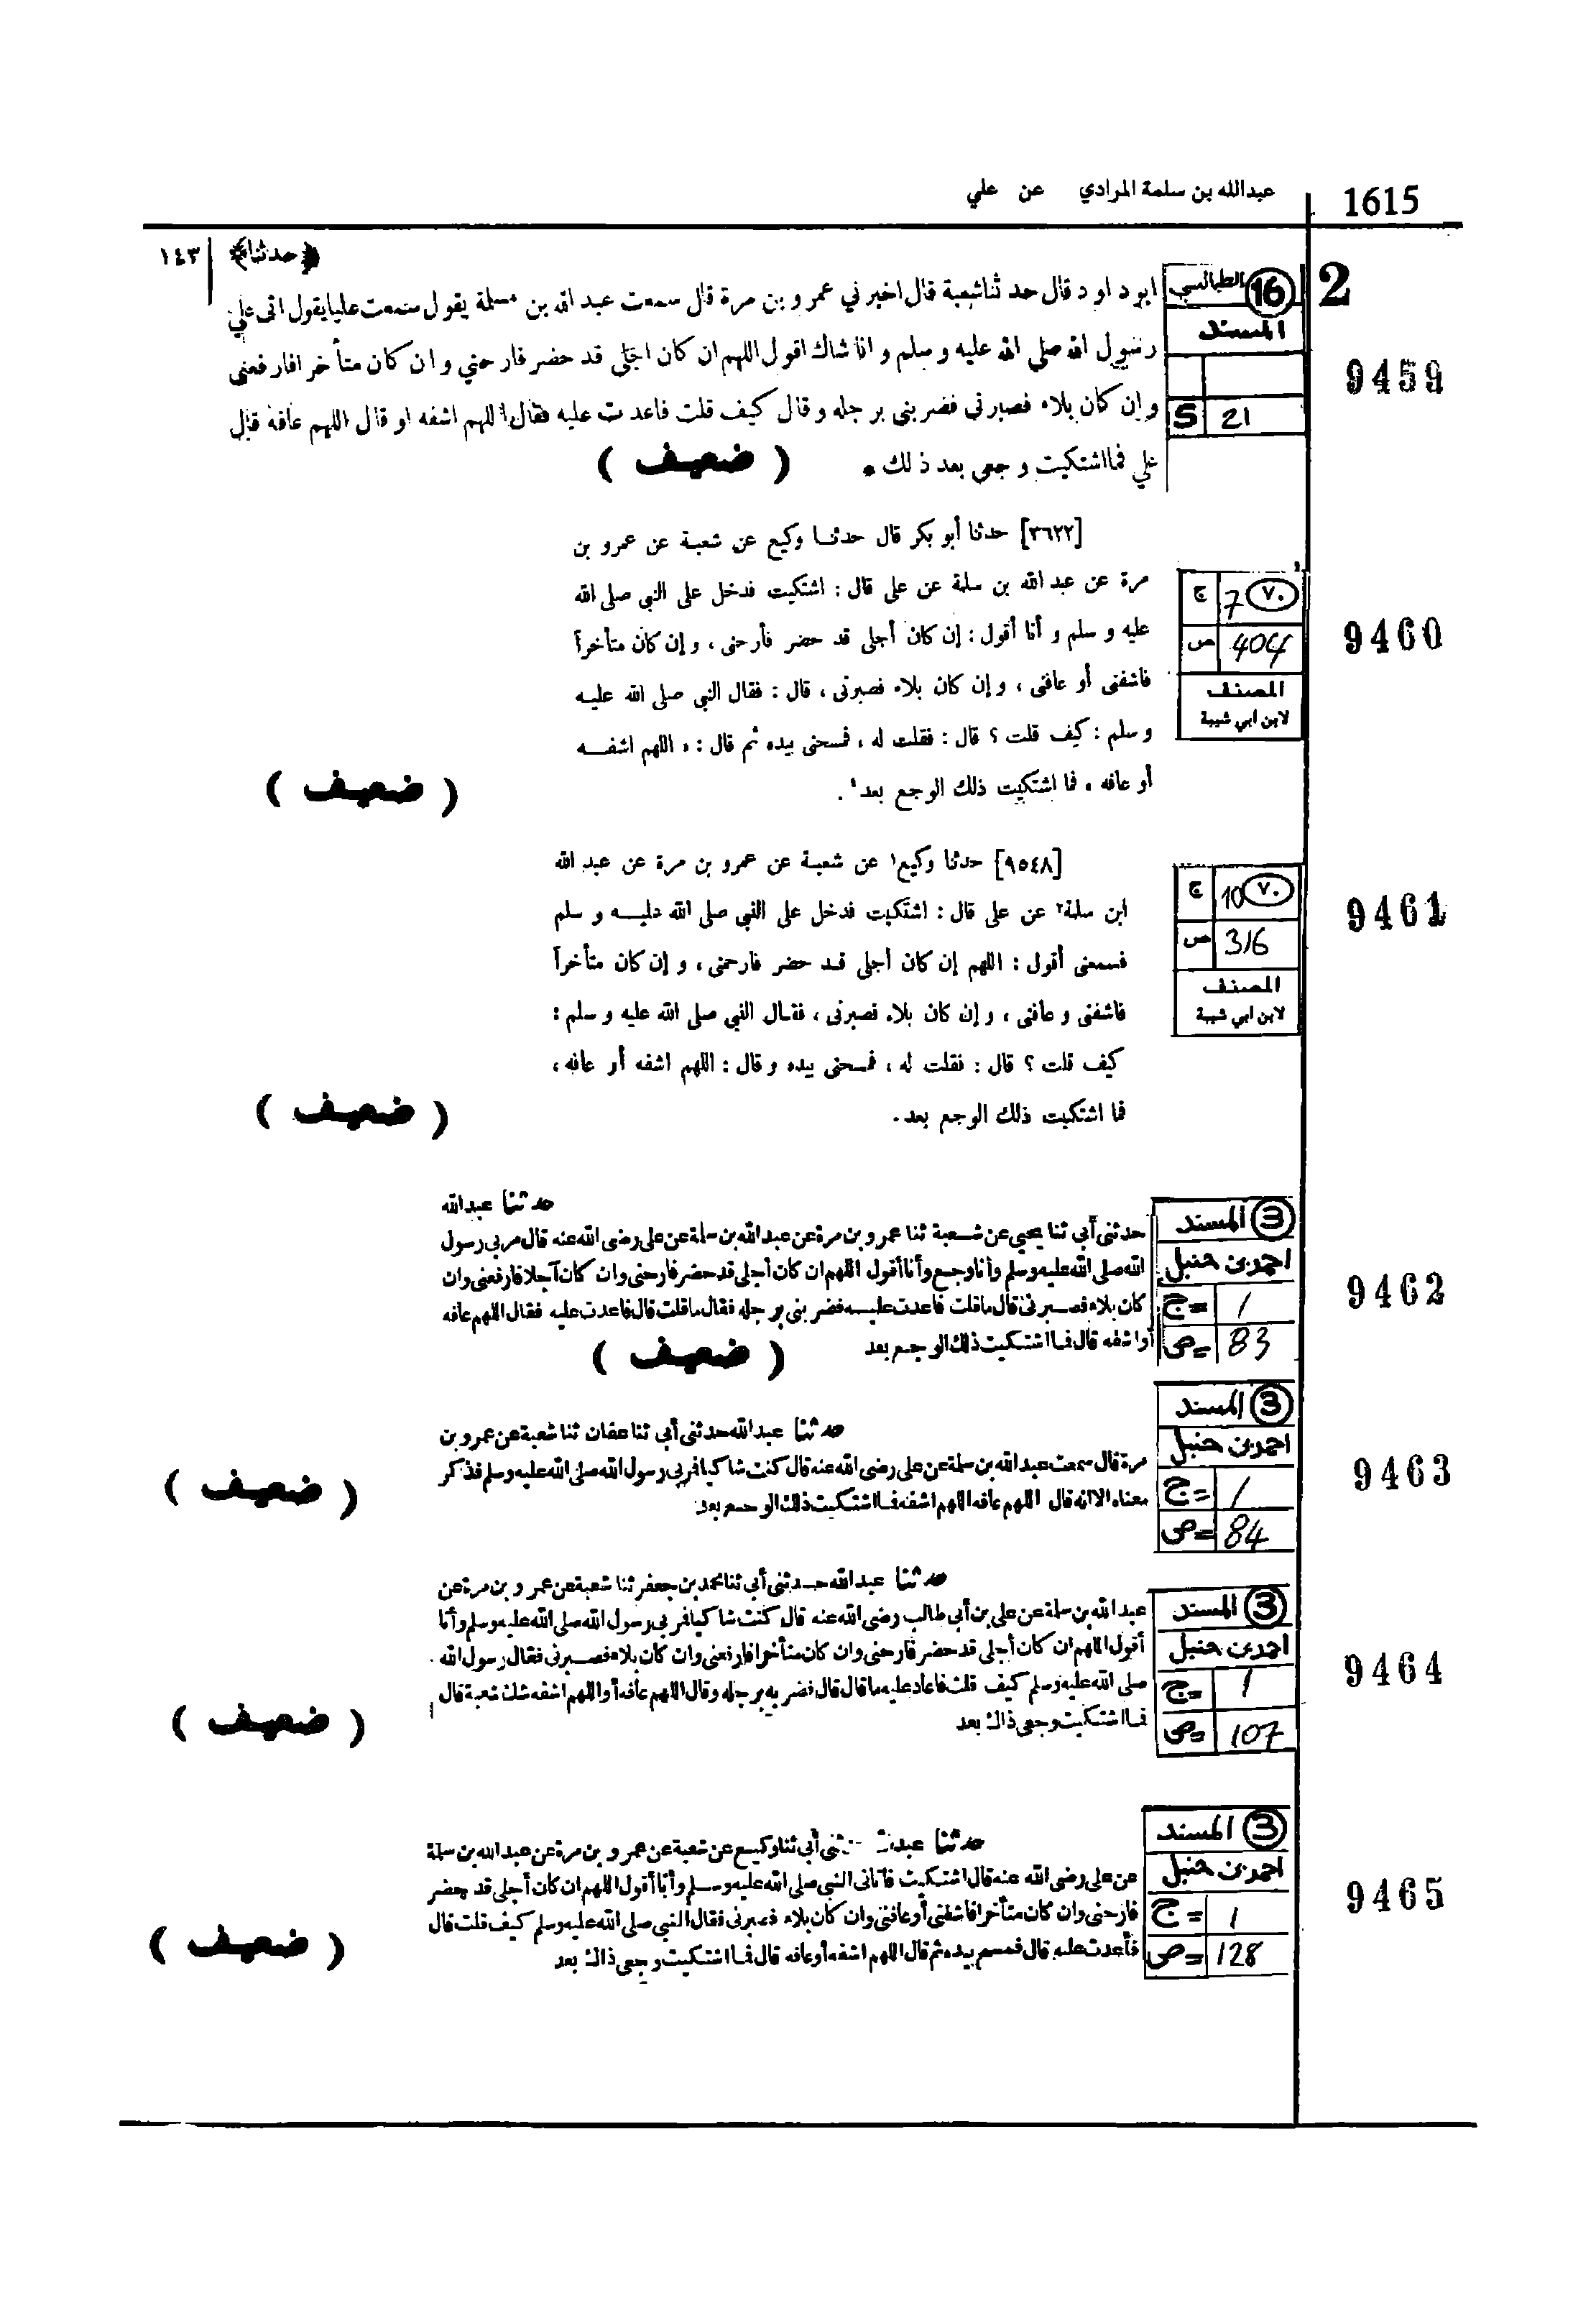 1615
عبدالله بن سلمة المرادي عن علي
﴿حدثنا﴾ ١٤٣
2
16 الطيالسي
المسند
S 21
9459
ابو داود قال حدثنا شعبة قال اخبرني عمرو بن مرة قال سمعت عبد الله بن سلمة يقول سمعت عليا يقول اتى علي
رسول الله صلى الله عليه وسلم وانا شاك اقول اللهم ان كان اجلي قد حضر فارحني وان كان متأخرا فارفعني
وان كان بلاء فصبرني فضربني برجله وقال كيف قلت فاعدت عليه فقال اللهم اشفه او قال اللهم عافه قال
علي فما اشتكيت وجعي بعد ذلك •
( ضعيف )
9460
٧٠ 7 ج
404 ص
المصنف
لابن ابي شيبة
[٣٦٢٢] حدثنا أبو بكر قال حدثنا وكيع عن شعبة عن عمرو بن
مرة عن عبد الله بن سلمة عن على قال : اشتكيت فدخل على النبي صلى الله
عليه و سلم و أنا أقول : إن كان أجلى قد حضر فأرحنى ، و إن كان متأخراً
فاشفنى أو عافنى ، و إن كان بلاء فصبرنى ، قال : فقال النبي صلى الله عليه
و سلم : كيف قلت ؟ قال : فقلت له ، فمسحنى بيده ثم قال : « اللهم اشفه
أو عافه » فما اشتكيت ذلك الوجع بعد .
( ضعيف )
9461
٧٠ 10 ج
316 ص
المصنف
لابن ابي شيبة
[٩٥٤٨] حدثنا وكيع١ عن شعبة عن عمرو بن مرة عن عبد الله
ابن سلمة٢ عن على قال : اشتكيت فدخل على النبي صلى الله عليه و سلم
فسمعنى أقول : اللهم إن كان أجلى قد حضر فارحمنى ، و إن كان متأخراً
فاشفنى و عافنى ، و إن كان بلاء فصبرنى ، فقال النبي صلى الله عليه و سلم :
كيف قلت ؟ قال : فقلت له ، فمسحنى بيده و قال : اللهم اشفه أو عافه ،
فما اشتكيت ذلك الوجع بعد .
( ضعيف )
9462
3 المسند
احمد بن حنبل
ج = 1
ص = 83
حدثنا عبدالله
حدثنى أبي ثنا يحيى عن شعبة ثنا عمرو بن مرة عن عبد الله بن سلمة عن على رضى الله عنه قال مر بي رسول
الله صلى الله عليه وسلم وأنا وجع وأنا أقول اللهم ان كان أجلى قد حضر فارحنى وان كان آجلا فارفعنى وان
كان بلاء فصبرنى قال ما قلت فاعدت عليه فضربنى برجله فقال ما قلت قال فاعدت عليه فقال اللهم عافه
أو اشفه قال فما اشتكيت ذلك الوجع بعد
( ضعيف )
9463
3 المسند
احمد بن حنبل
ج = 1
ص = 84
حدثنا عبد الله حدثنى أبي ثنا عفان ثنا شعبة عن عمرو بن
مرة قال سمعت عبد الله بن سلمة عن على رضى الله عنه قال كنت شاكيا فمر بي رسول الله صلى الله عليه وسلم فذكر
معناه الا انه قال اللهم عافه اللهم اشفه فما اشتكيت ذلك الوجع بعد
( ضعيف )
9464
3 المسند
احمد بن حنبل
ج = 1
ص = 107
حدثنا عبد الله حدثنى أبي ثنا محمد بن جعفر ثنا شعبة عن عمرو بن مرة عن
عبد الله بن سلمة عن على بن أبي طالب رضى الله عنه قال كنت شاكيا فمر بي رسول الله صلى الله عليه وسلم وأنا
أقول اللهم ان كان أجلى قد حضر فارحنى وان كان متأخرا فارفعنى وان كان بلاء فصبرنى فقال رسول الله
صلى الله عليه وسلم كيف قلت فاعاد عليه ما قال قال فضربه برجله وقال اللهم عافه أو اللهم اشفه شك شعبة قال
فما اشتكيت وجعى ذاك بعد
( ضعيف )
9465
3 المسند
احمد بن حنبل
ج = 1
ص = 128
حدثنا عبد ثنى أبي ثنا وكيع عن شعبة عن عمرو بن مرة عن عبد الله بن سلمة
عن على رضى الله عنه قال اشتكيت فأتانى النبي صلى الله عليه وسلم وأنا أقول اللهم ان كان أجلى قد حضر
فارحنى وان كان متأخرا فاشفنى أو عافنى وان كان بلاء فصبرنى فقال النبي صلى الله عليه وسلم كيف قلت قال
فأعدت عليه قال فمسح بيده ثم قال اللهم اشفه أو عافه قال فما اشتكيت وجعى ذاك بعد
( ضعيف )